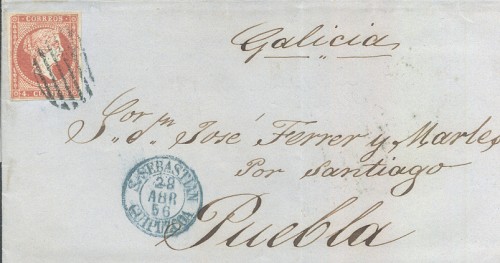 CORREOS
Galicia
Sor. Dn. José Ferrer y Martes
Por Santiago
Puebla
S. SEBASTIAN
28
ABR
56
GUIPUZCOA